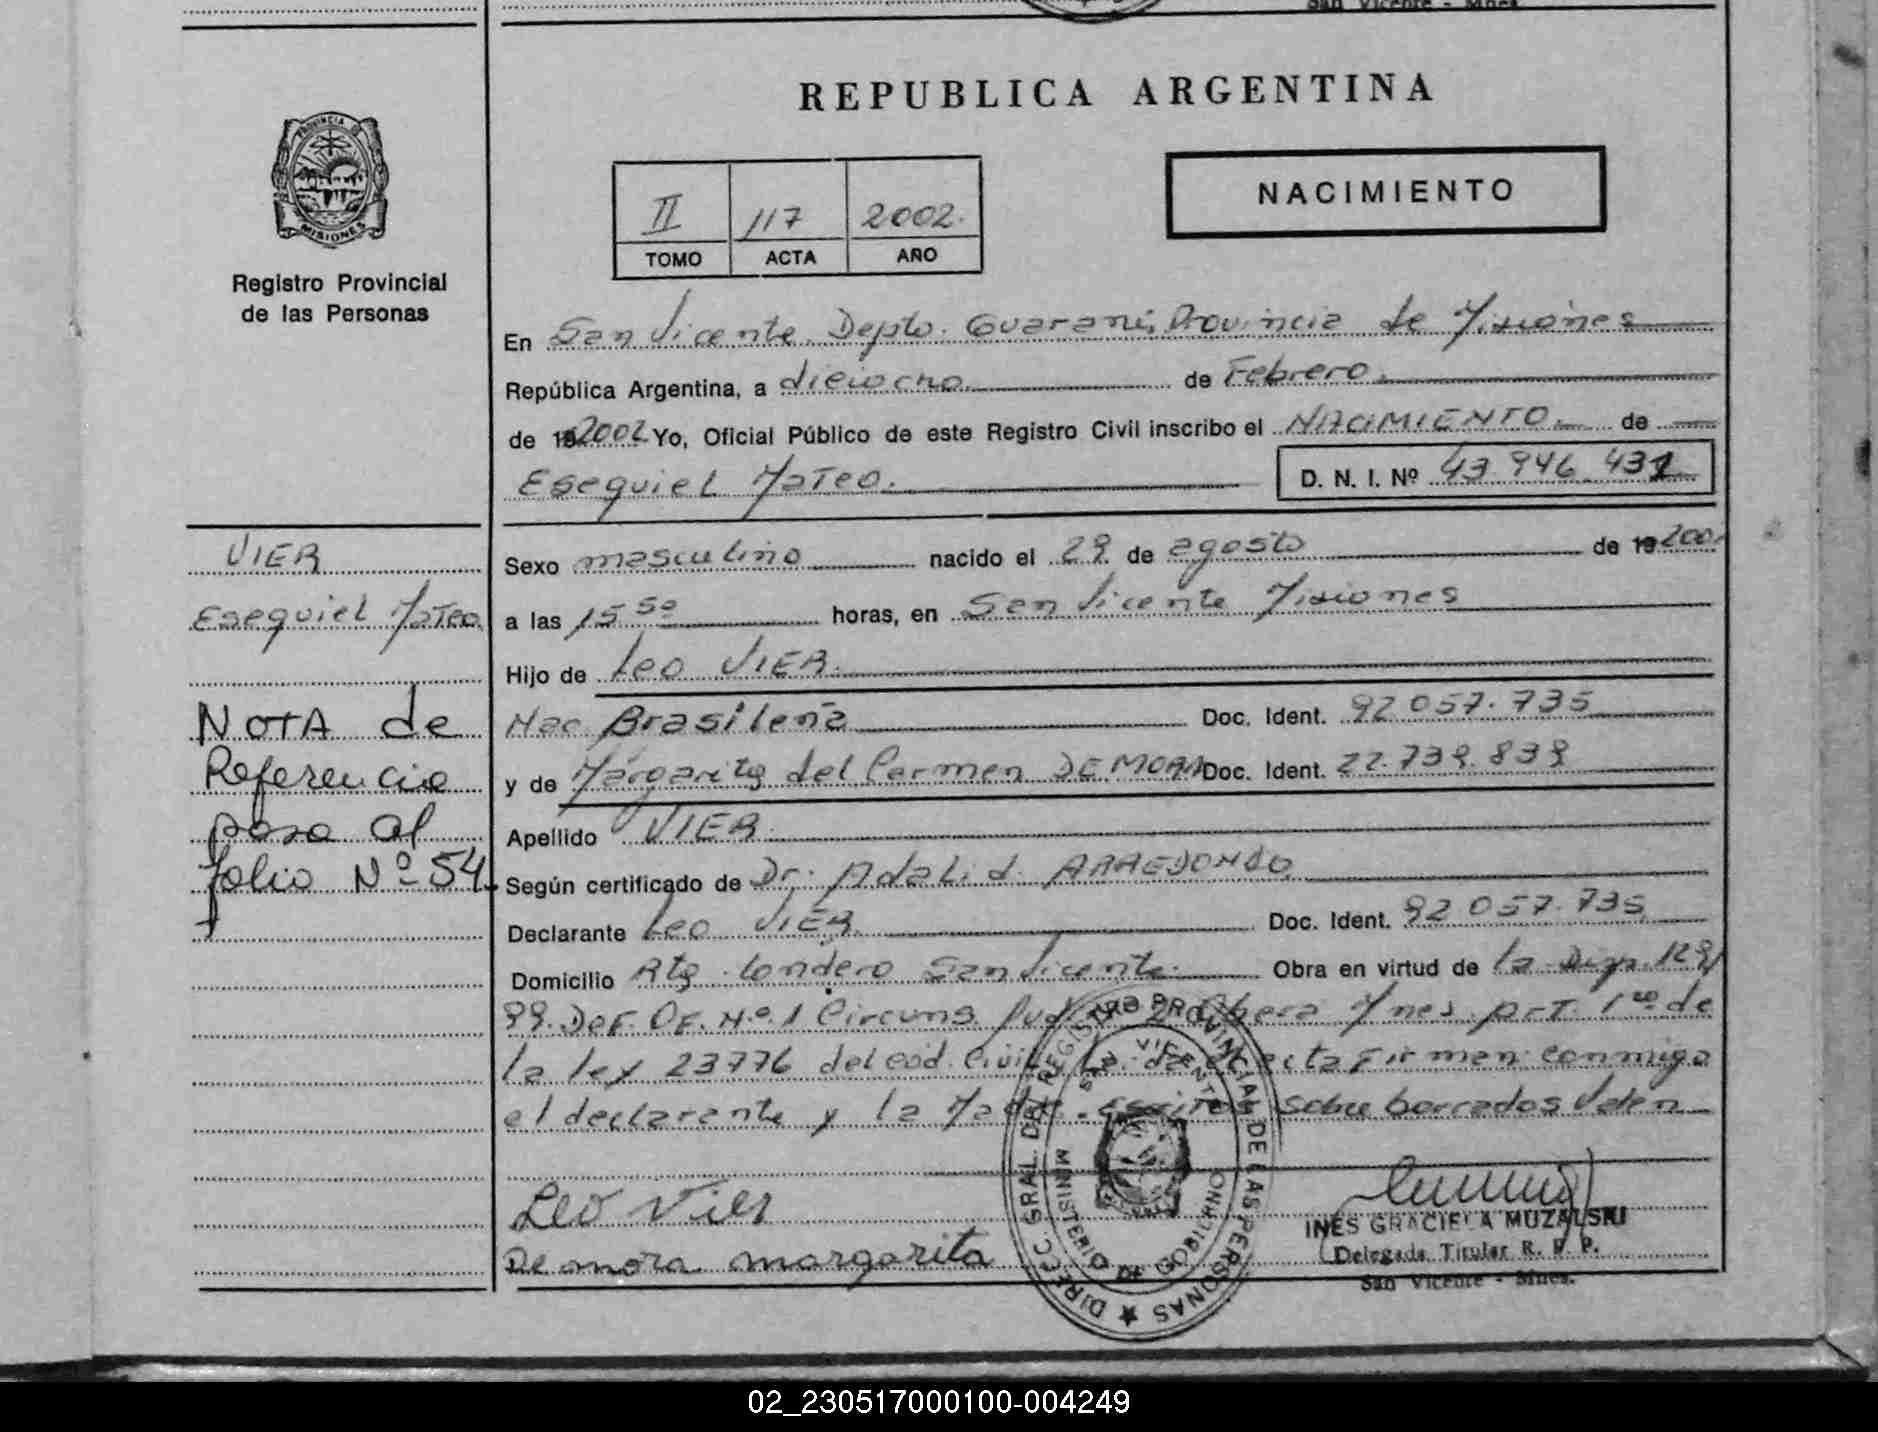 REPUBLICA ARGENTINA
PROVINCIA DE
MISIONES
Registro Provincial
de las Personas
II 117 2002.
TOMO ACTA AÑO
NACIMIENTO
En San Vicente Depto. Guaraní, Provincia de Misiones
República Argentina, a dieciocho de Febrero
de 192002 Yo, Oficial Público de este Registro Civil inscribo el NACIMIENTO de
Esequiel Mateo. D. N. I. Nº 43.946.431
VIER
Esequiel Mateo
Sexo masculino nacido el 29 de agosto de 19 200
a las 15 50 horas, en San Vicente Misiones
Hijo de Leo VIER.
Nac. Brasileña Doc. Ident. 92.057.735
y de Margarita del Carmen DE MORA Doc. Ident. 22.739.839
Apellido VIER
Según certificado de Dr. Adalid ARREDONDO
Declarante Leo VIER Doc. Ident. 92.057.735
Domicilio Rta. Londero San Vicente. Obra en virtud de la Disp. 129/
99. Def. Of. Nº 1 Circuns. Jud. Mnes. prt. 1ro de
la ley 23776 del cod. Civil. Leída el acta Firman conmigo
el declarante y la Madre. Escritos sobre borrados Valen
NOTA de
Referencia
pasa al
folio Nº 54.
Leo Vier
De mora margarita
DIREC. GRAL. DEL REGISTRO PROVINCIAL DE LAS PERSONAS
SAN VICENTE
MINISTERIO DE GOBIERNO
INES GRACIELA MUZALSKI
Delegada Titular R. P. P.
San Vicente - Mnes.
02_230517000100-004249